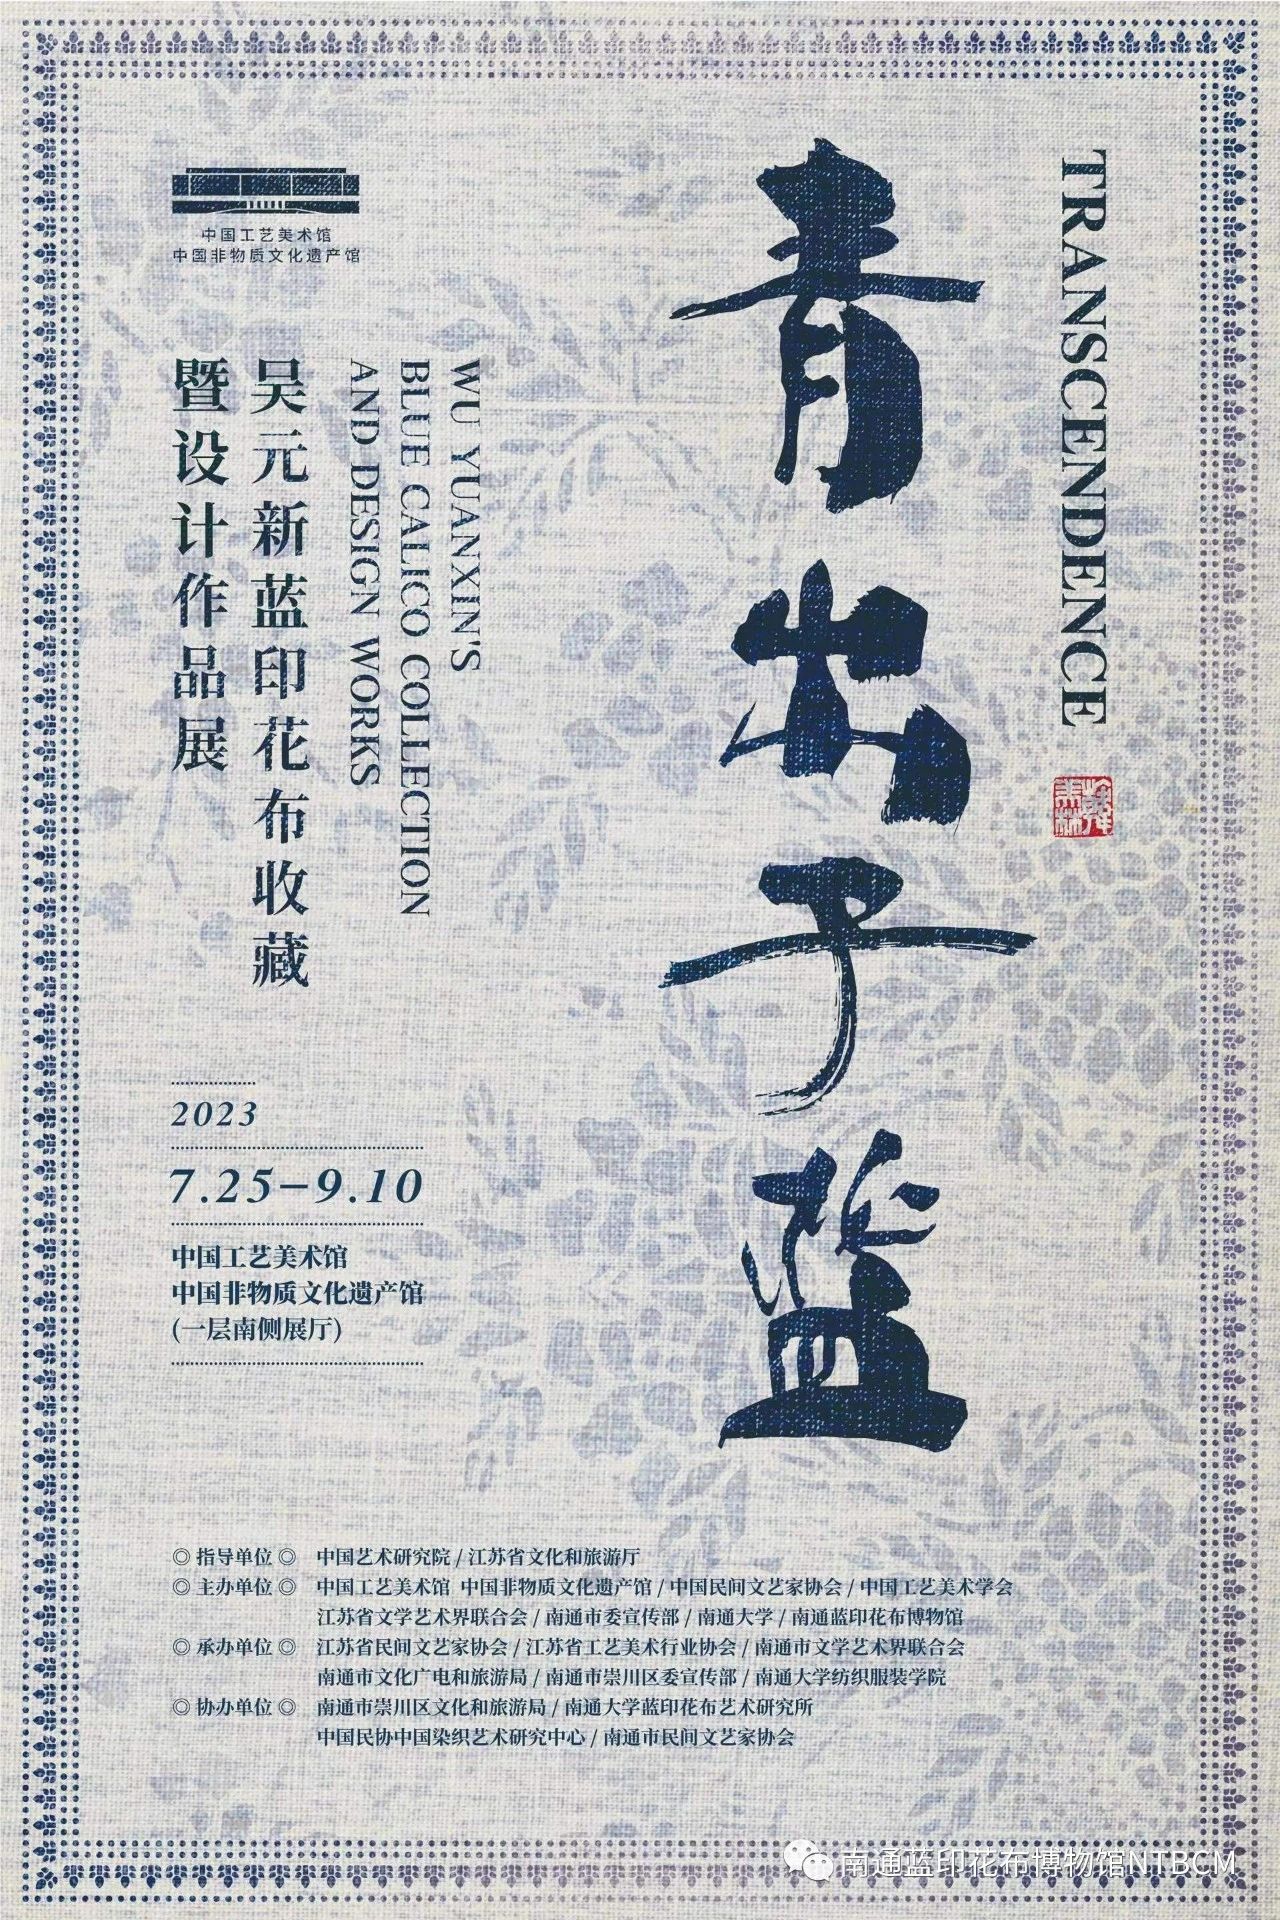 TRANSCENDENCE
青出于蓝
中国工艺美术馆
中国非物质文化遗产馆
WU YUANXIN'S
BLUE CALICO COLLECTION
AND DESIGN WORKS
吴元新蓝印花布收藏
暨设计作品展
2023
7.25–9.10
中国工艺美术馆
中国非物质文化遗产馆
(一层南侧展厅)
◎ 指导单位 ◎ 中国艺术研究院 / 江苏省文化和旅游厅
◎ 主办单位 ◎ 中国工艺美术馆 中国非物质文化遗产馆 / 中国民间文艺家协会 / 中国工艺美术学会
江苏省文学艺术界联合会 / 南通市委宣传部 / 南通大学 / 南通蓝印花布博物馆
◎ 承办单位 ◎ 江苏省民间文艺家协会 / 江苏省工艺美术行业协会 / 南通市文学艺术界联合会
南通市文化广电和旅游局 / 南通市崇川区委宣传部 / 南通大学纺织服装学院
◎ 协办单位 ◎ 南通市崇川区文化和旅游局 / 南通大学蓝印花布艺术研究所
中国民协中国染织艺术研究中心 / 南通市民间文艺家协会
南通蓝印花布博物馆NTBCM